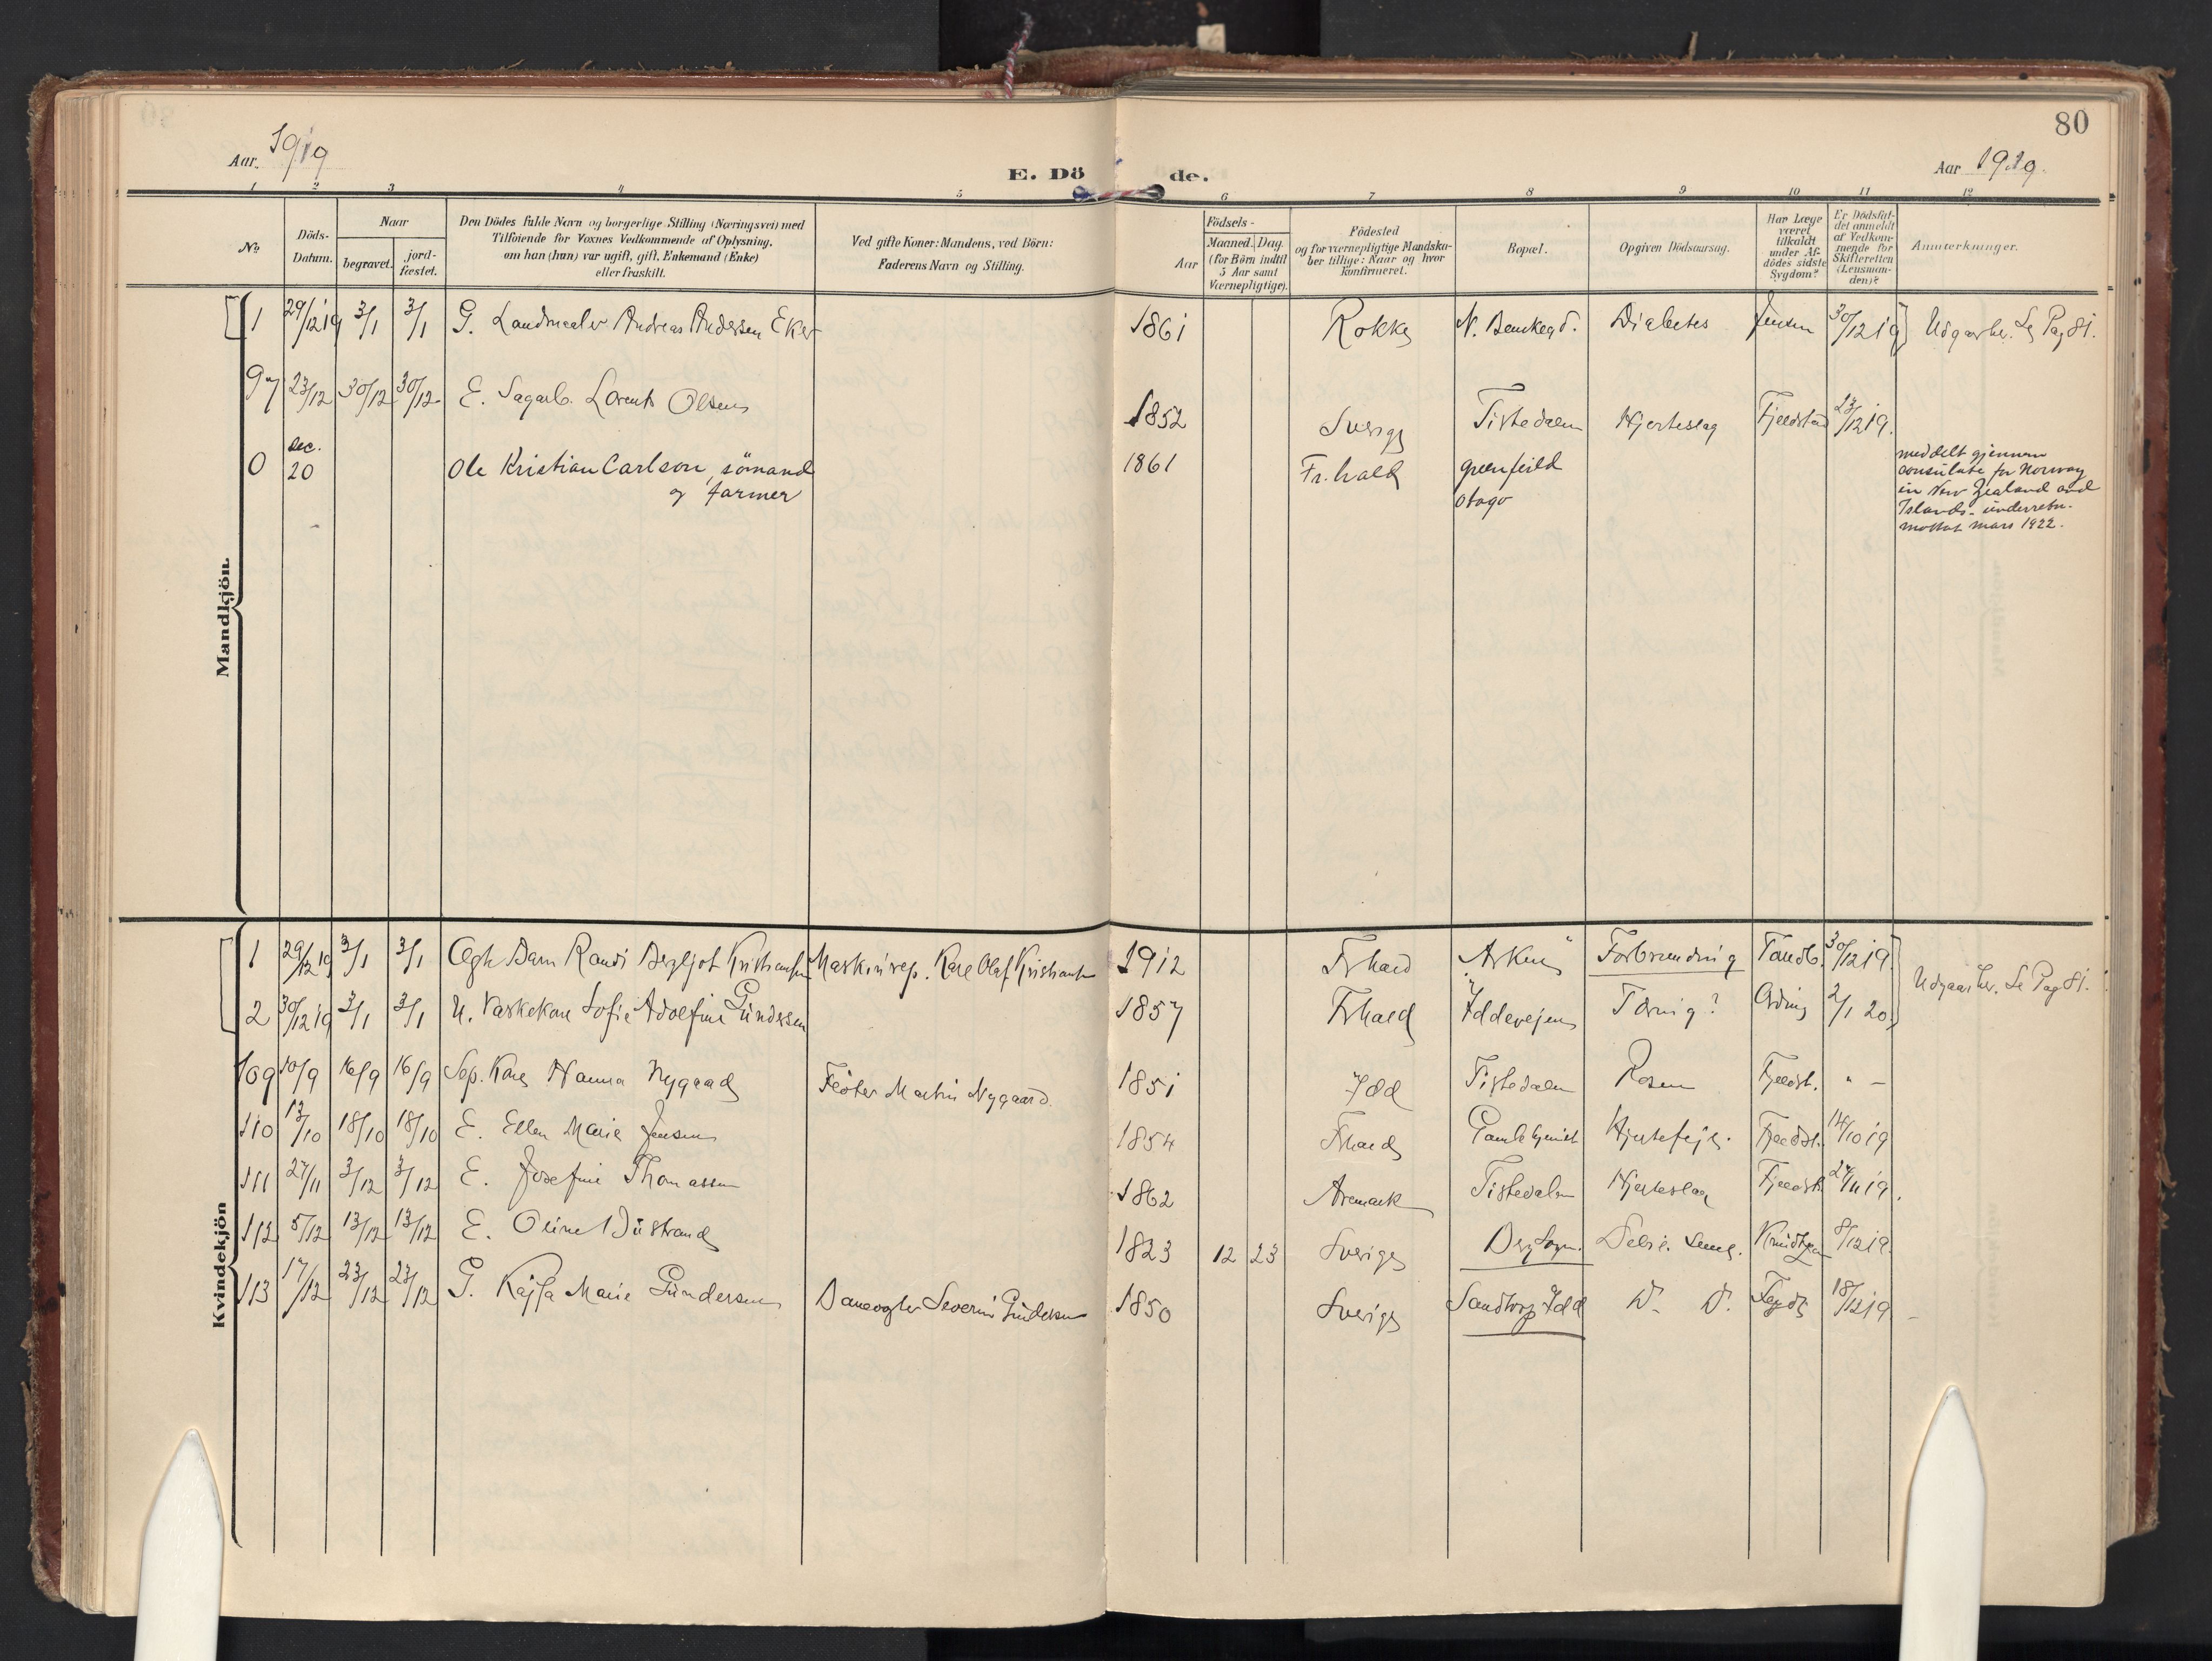 80
Aar. 1919
E. Döde.
Aar 1919.
1 2 3 4 5 6 7 8 9 10 11 12
No
Döds-Datum.
Naar
begravet.
jord-fæstet.
Den Dödes fulde Navn og borgerlige Stilling (Næringsvei) med
Tilföiende for Voxnes Vedkommende af Oplysning,
om han (hun) var ugift, gift, Enkemand (Enke)
eller fraskilt.
Ved gifte Koner: Mandens, ved Börn:
Faderens Navn og Stilling.
Födsels-
Aar
Maaned. Dag.
(for Börn indtil
5 Aar samt
Værnepligtige).
Födested
og for værnepligtige Mandska-
ber tillige: Naar og hvor
konfirmeret.
Bopæl.
Opgiven Dödsaarsag.
Har Læge
været
tilkaldt
under Af-
dödes sidste
Sygdom?
Er Dödsfal-
det anmeldt
af Vedkom-
mende for
Skifteretten
(Lensman-
den)?
Anmerkninger.
Mandkjön.
1 29/12 19 3/1 3/1 G. Landmaaler Andreas Andersen Eker 1861 Rokke N. Bankegd. Diabetes Jensen 30/12 19 Udgaar her. Se Pag 81.
97 23/12 30/12 30/12 E. Sagarb. Lorents Olsen 1852 Sverige Tistedalen Hjerteslag Fjeldstad 23/12 19.
0 dec. 20 Ole Kristian Carlson, sömand 1861 Fr.hald greenfeild
og farmer otago
meddelt gjennem
consulate for Norway
in New Zealand and
Islands - underretn.
mottat mars 1922.
Kvindekjön
1 29/12 19 3/1 3/1 Ægte Barn Randi Bergljot Kristiansen Maskinrep. Karl Olaf Kristiansen 1912 Frhald Forbrænding Tandb. 30/12 19.
Udgaar her. Se Pag 81.
2 30/12 19 3/1 3/1 U. Vaskekone Sofie Adolfine Gundersen 1857 Frhald Iddeveien Tæring? 2/1 20
109 10/9 16/9 16/9 Sep. Kone Hanna Nygaard Flöter Martin Nygaard. 1851 Idd Tistedalen Rosen Fjeldst. " -
110 13/10 18/10 18/10 E. Ellen Marie Jensen 1854 Frhald Hjertefeil. Fjeldst. 14/10 19
111 27/11 3/12 3/12 E. Josefine Thomassen 1862 Aremark Tistedalen Hjerteslag Fjeldst. 27/11 19.
112 5/12 13/12 13/12 E. Oline Bustrand 1823 12 23 Sverige Berg Sogn. Debil. senil. Knudtzon 8/12 19.
113 17/12 23/12 23/12 G. Kajsa Marie Gundersen Banevogter Severin Gundersen 1850 Sverige Sandtorp Idd D. D. 18/12 19